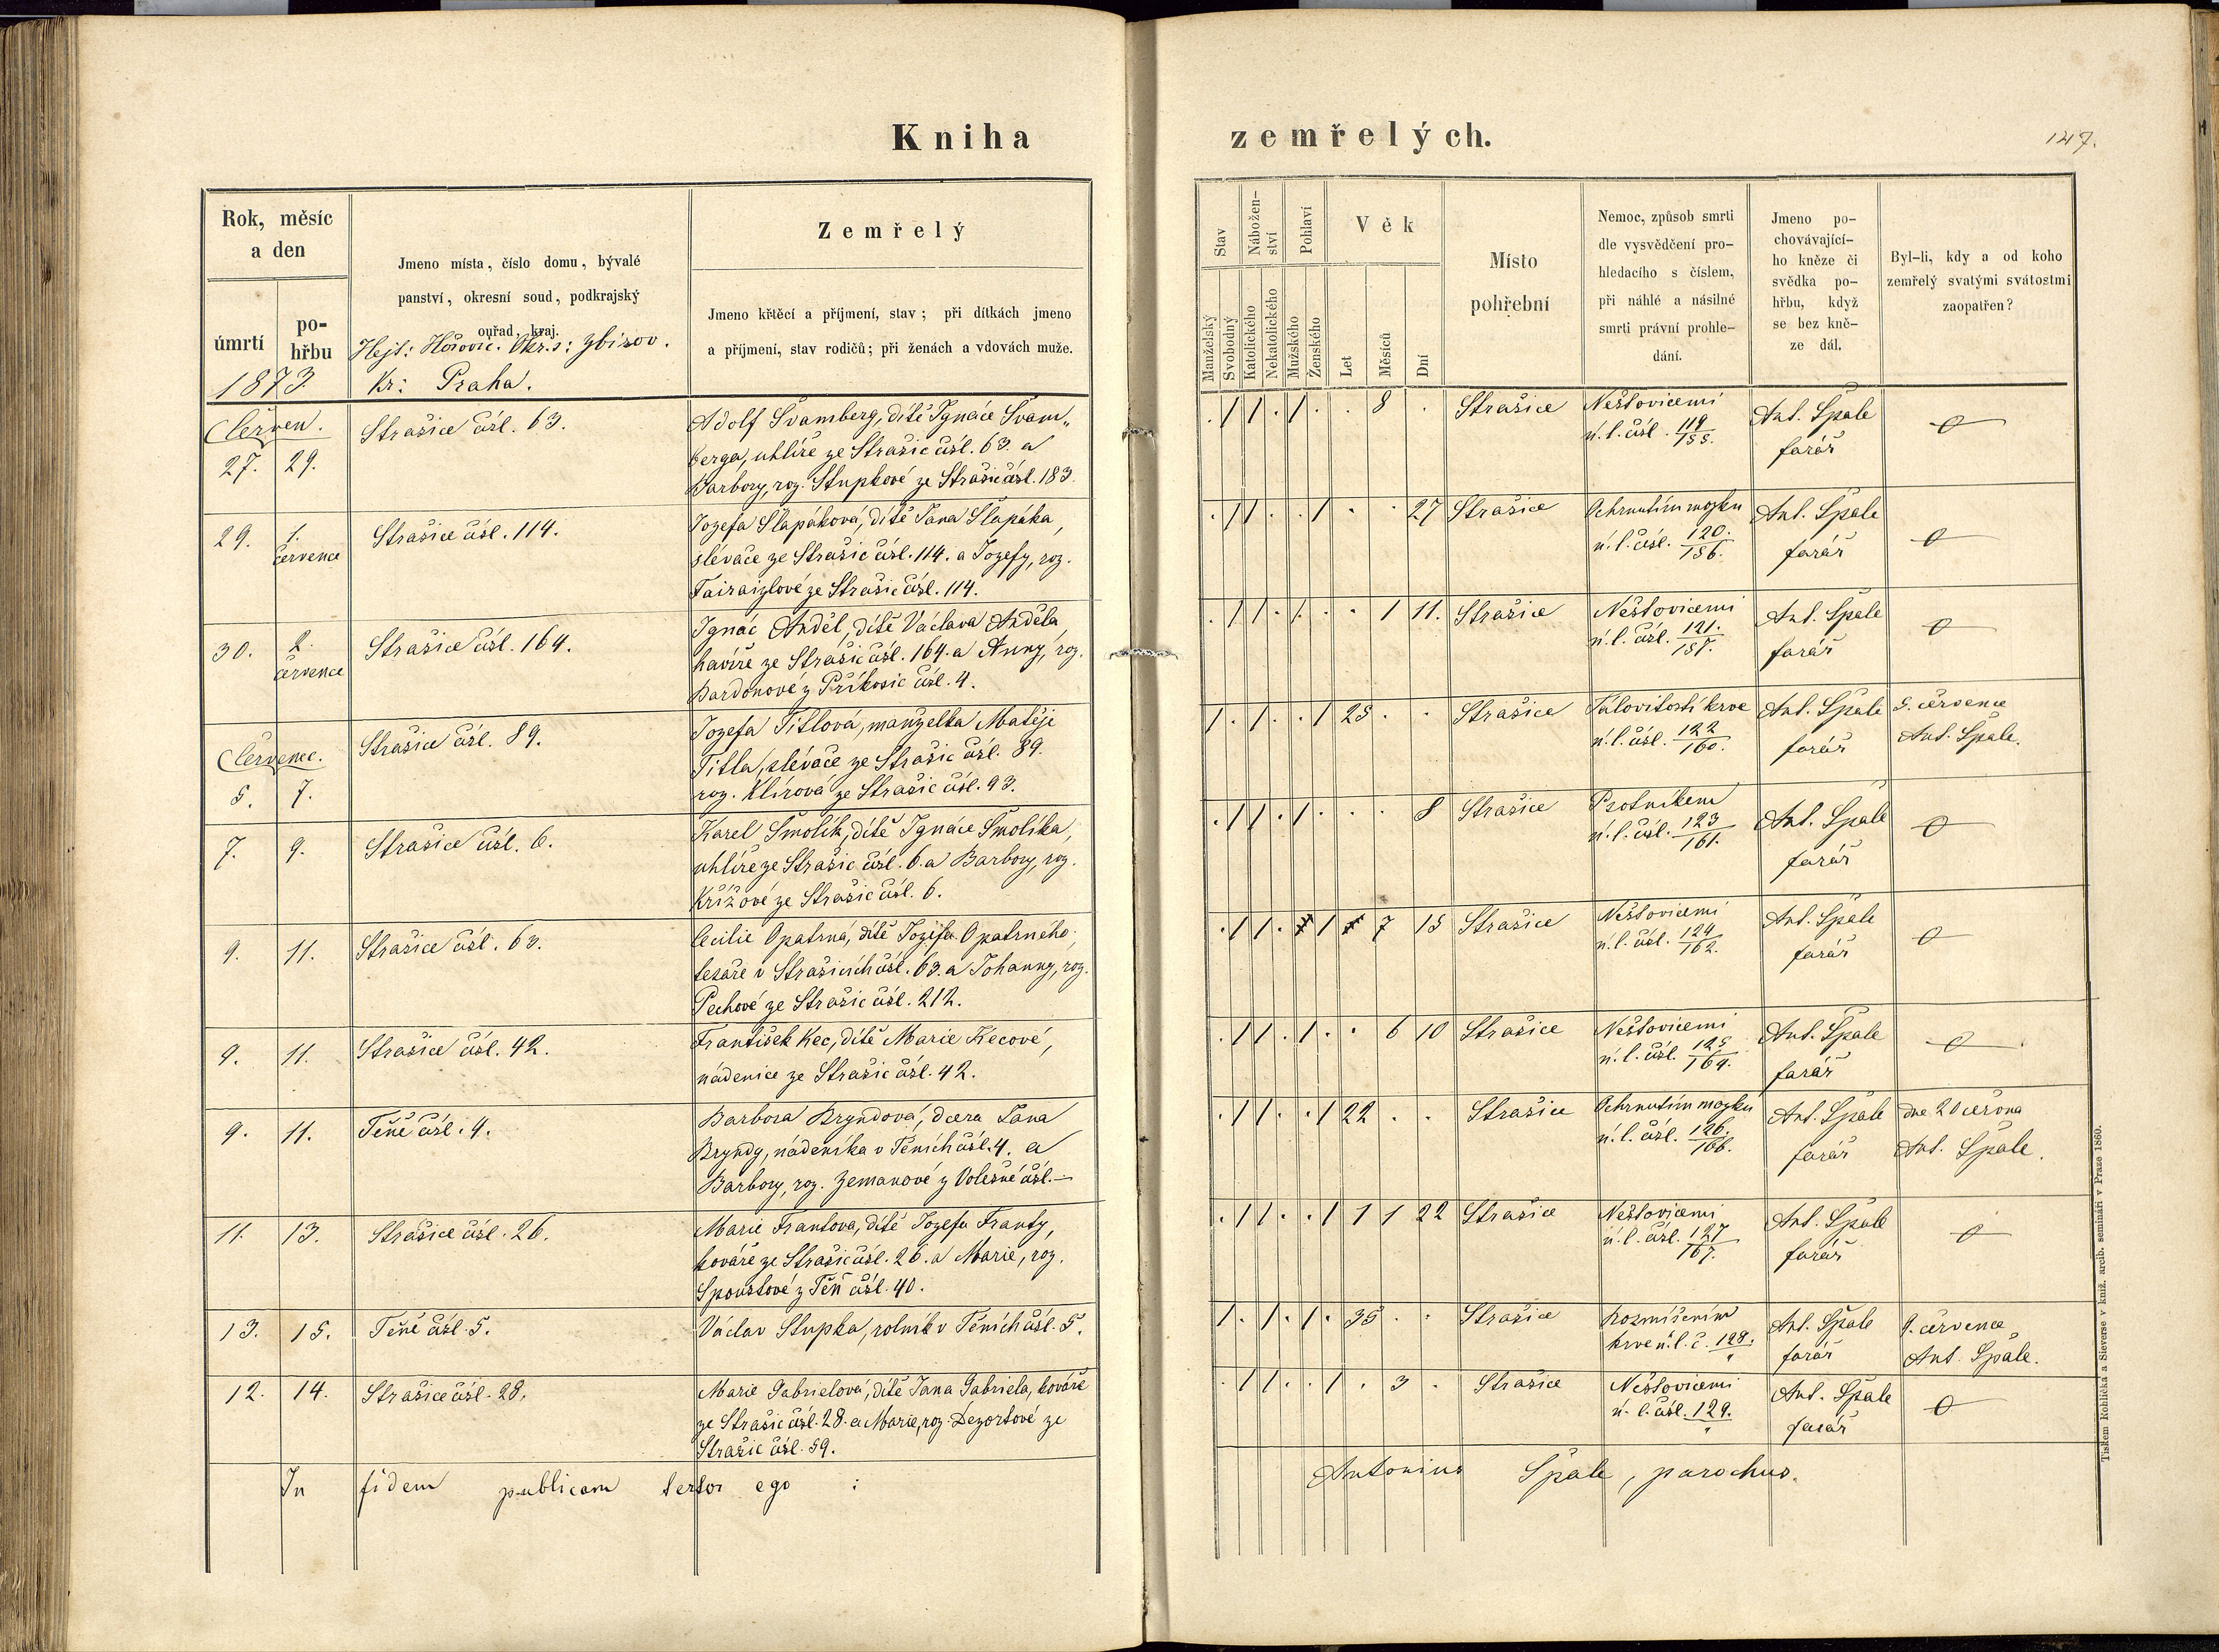 Kniha zemřelých.
147.
Rok, měsíc
a den
úmrtí
po-
hřbu
1873.
Jmeno místa, číslo domu, bývalé
panství, okresní soud, podkrajský
ouřad, kraj.
Hejt: Hořovic. Okr. s: Zbirov.
Kr: Praha.
Zemřelý
Jmeno křtěcí a příjmení, stav; při dítkách jmeno
a příjmení, stav rodičů; při ženách a vdovách muže.
Stav
Manželský
Svobodný
Nábožen-
ství
Katolického
Nekatolického
Pohlaví
Mužského
Ženského
Věk
Let
Měsíců
Dní
Místo
pohřební
Nemoc, způsob smrti
dle vysvědčení pro-
hledacího s číslem,
při náhlé a násilné
smrti právní prohle-
dání.
Jmeno po-
chovávající-
ho kněze či
svědka po-
hřbu, když
se bez kně-
ze dál.
Byl-li, kdy a od koho
zemřelý svatými svátostmi
zaopatřen?
Červen.
27. 29.
Strašice čísl. 63.
Adolf Švamberg, dítě Ignáce Švam„
berga, uhlíře ze Strašic čísl. 63. a
Barbory, roz. Stupkové ze Strašic čísl. 183.
. / / . / . . 8 .
Strašice
Neštovicemi
n. l. čísl. 119/155.
Ant. Špale
farář
29. 1.
července
Strašice čísl. 114.
Jozefa Šlapáková, dítě Jana Šlapáka,
slévače ze Strašic čísl. 114. a Jozefy, roz.
Fairaizlové ze Strašic čísl. 114.
. / / . . / . . 27
Strašice
Ochrnutím mozku
n. l. čísl. 120./156.
Ant. Špale
farář
30. 2.
července
Strašice čísl. 164.
Ignác Anděl, dítě Václava Anděla,
havíře ze Strašic čísl. 164. a Anny, roz.
Bardonové z Příkosic čísl. 4.
. / / . / . . 1 11.
Strašice
Neštovicemi
n. l. čísl. 121./157.
Ant. Špale
farář
Červenec.
5. 7.
Strašice čísl. 89.
Jozefa Titlová, manželka Matěje
Titla, slévače ze Strašic čísl. 89.
roz. Klírová ze Strašic čísl. 93.
/ . / . . / 25 . .
Strašice
krve
n. l. čísl. 122/160.
Ant. Špale
farář
5. července
Ant. Špale.
7. 9.
Strašice čísl. 6.
Karel Smolík, dítě Ignáce Smolíka,
uhlíře ze Strašic čísl. 6. a Barbory, roz.
Křížové ze Strašic čísl. 6.
. / / . / . . . 8
Strašice
Psotníkem
n. l. čísl. 123/161.
Ant. Špale
farář
9. 11.
Strašice čísl. 63.
Cecilie Opatrná, dítě Jozefa Opatrného,
tesaře v Strašicích čísl. 63. a Johanny, roz.
Pechové ze Strašic čísl. 212.
. / / . / 7 15
Strašice
Neštovicemi
n. l. čísl. 124/162.
Ant. Špale
farář
9. 11.
Strašice čísl. 42.
František Kec, dítě Marie Kecové,
nádenice ze Strašic čísl. 42.
. / / . / . . 6 10
Strašice
Neštovicemi
n. l. čísl. 125/164.
Ant. Špale
farář
9. 11.
Těně čísl. 4.
Barbora Bryndová, dcera Jana
Bryndy, nádeníka v Těních čísl. 4. a
Barbory, roz. Zemanové z Volešné čísl. —
. / / . . / 22 . .
Strašice
Ochrnutím mozku
n. l. čísl. 126./166.
Ant. Špale
farář
dne 20 června
Ant. Špale.
11. 13.
Strašice čísl. 26.
Marie Frantova, dítě Jozefa Franty,
kováře ze Strašic čísl. 26. a Marie, roz.
Spoustové z Těň čísl. 40.
. / / . . / 1 1 22
Strašice
Neštovicemi
n. l. čísl. 127/167.
Ant. Špale
farář
13. 15.
Těně čísl. 5.
Václav Stupka, rolník v Těních čísl. 5.
/ . / . / . 35 . .
Strašice
krve n. l. č. 128.
Ant. Špale
farář
9. července
Ant. Špale.
12. 14.
Strašice čísl. 28.
Marie Gabrielová, dítě Jana Gabriela, kováře
ze Strašic čísl. 28. a Marie, roz. Dezortové ze
Strašic čísl. 59.
. / / . . / . 3 .
Strašice
Neštovicemi
n. l. čísl. 129.
Ant. Špale
farář
In fidem publicam testor ego :
Antonius Špale, parochus.
Tiskem Rohlíčka a Sieverse v kníž. arcib. semináři v Praze 1860.